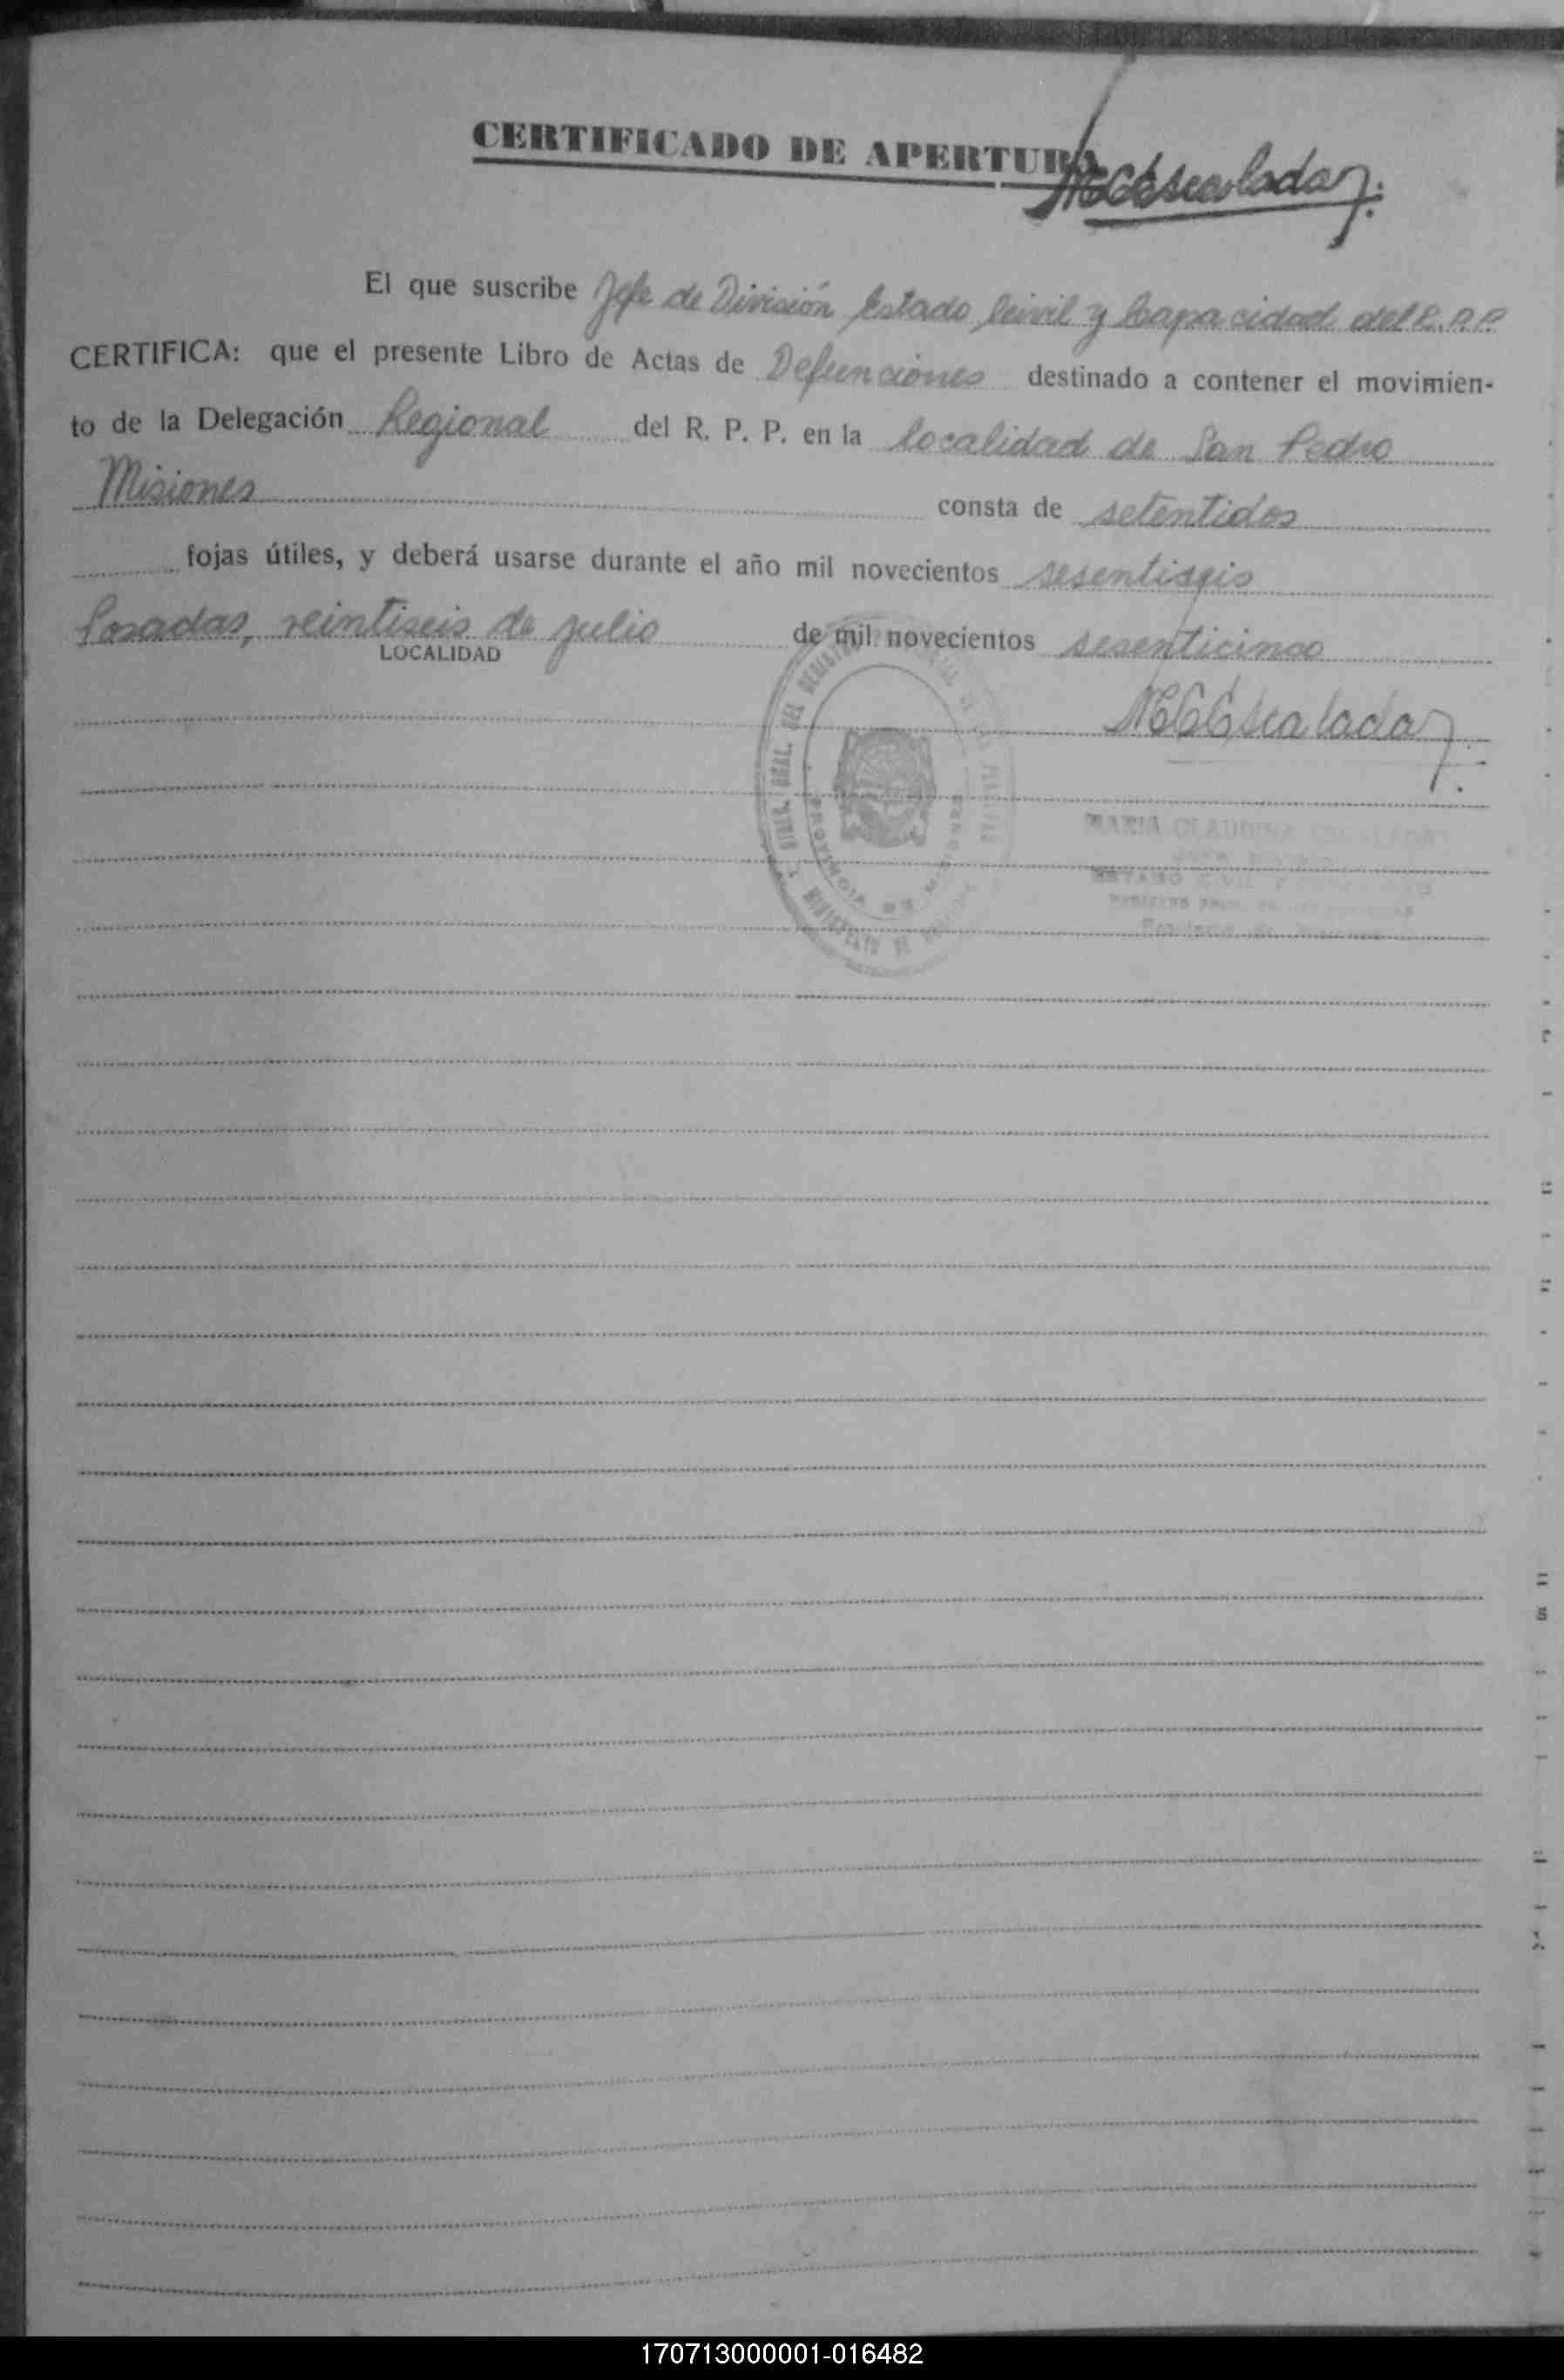 CERTIFICADO DE APERTURA
MCEscalada
El que suscribe Jefe de División Estado Civil y Capacidad del R.P.P.
CERTIFICA: que el presente Libro de Actas de Defunciones destinado a contener el movimien-
to de la Delegación Regional del R. P. P. en la localidad de San Pedro
Misiones consta de setentidos
fojas útiles, y deberá usarse durante el año mil novecientos sesentiseis
Posadas, veintiseis de julio de mil novecientos sesenticinco
LOCALIDAD
Escalada
MARIA CLAUDINA ESCALADA
ESTADO CIVIL
170713000001-016482